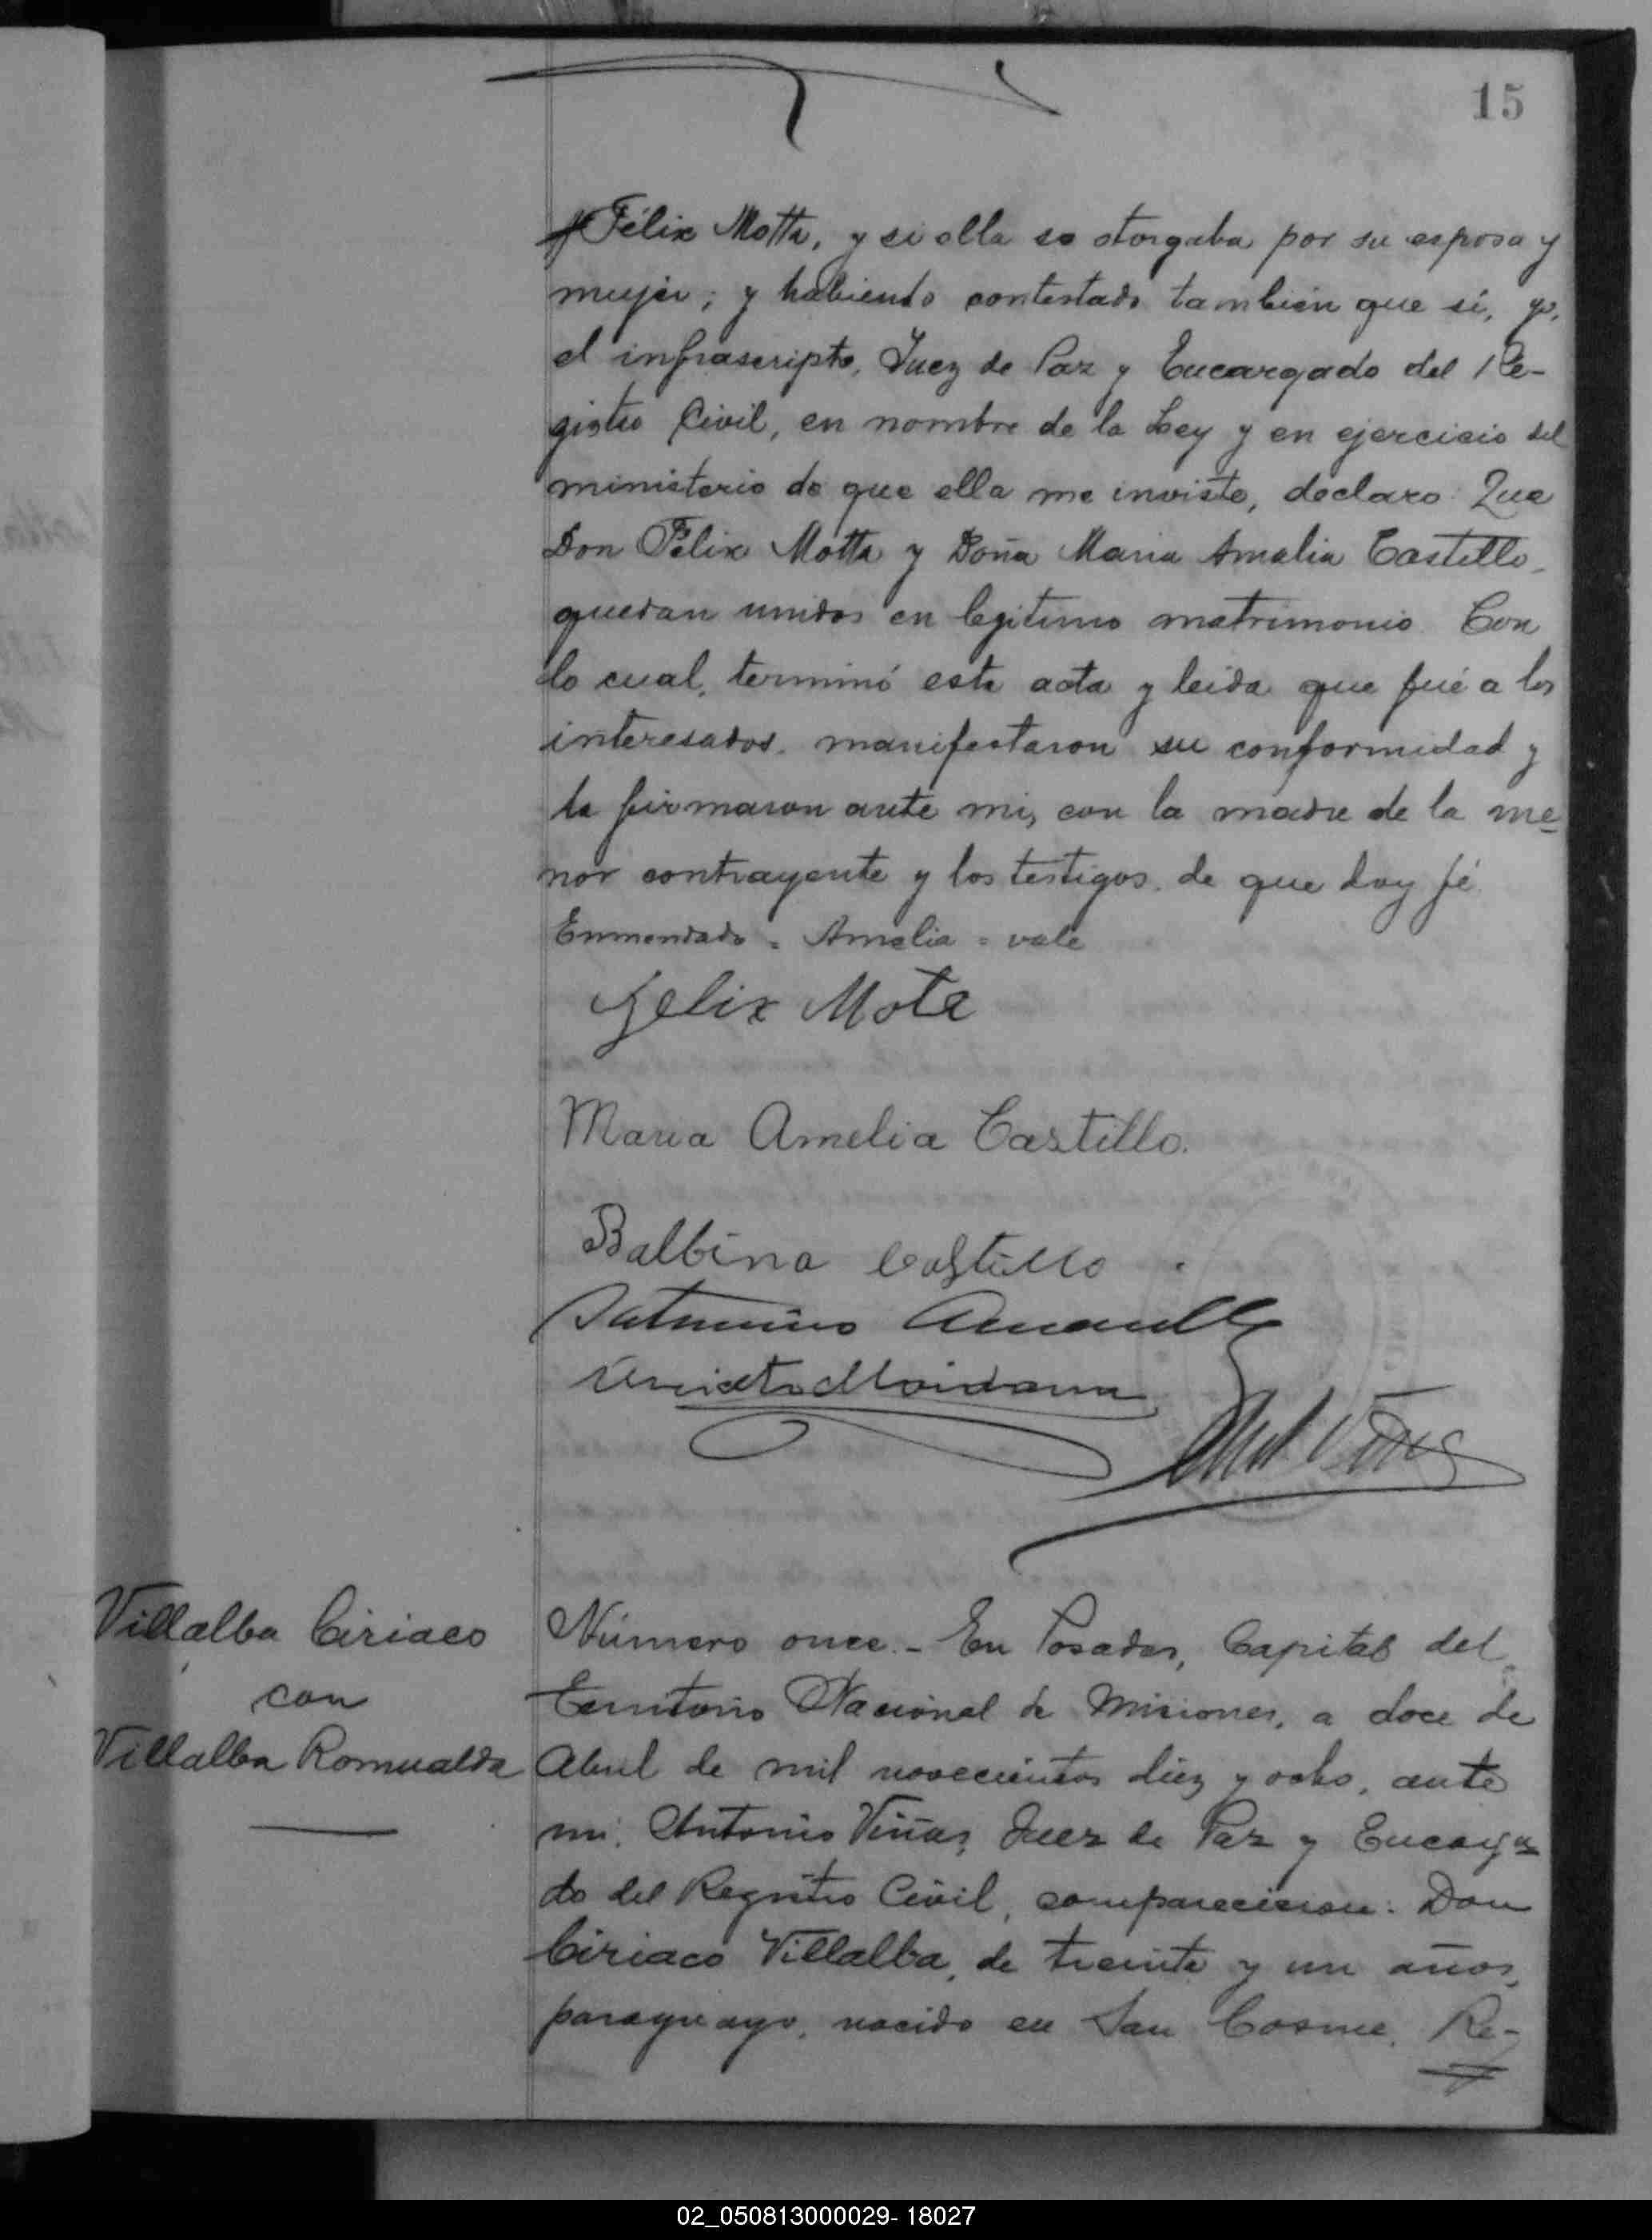 15
Félix Motta, y si ella se otorgaba por su esposa y
mujer; y habiendo contestado también que sí, yo,
el infrascripto, Juez de Paz y Encargado del Re-
gistro Civil, en nombre de la Ley y en ejercicio del
ministerio de que ella me inviste, declaro: Que
Don Félix Motta y Doña Maria Amelia Castillo
quedan unidos en legitimo matrimonio. Con
lo cual, terminó esta acta y leida que fué a los
interesados, manifestaron su conformidad y
la firmaron ante mi, con la madre de la me-
nor contrayente y los testigos, de que doy fé.
Enmendado = Amelia = vale
Felix Mota
Maria Amelia Castillo.
Balbina Castillo
Saturnino
Maidana
Ant Viñas
Villalba Ciriaco
con
Villalba Romualda
Número once.- En Posadas, Capital del
Territorio Nacional de Misiones, a doce de
Abril de mil novecientos diez y ocho, ante
mi, Antonio Viñas, Juez de Paz y Encarga-
do del Registro Civil, comparecieron: Don
Ciriaco Villalba, de treinta y un años,
paraguayo, nacido en San Cosme, Re-
02_050813000029- 18027